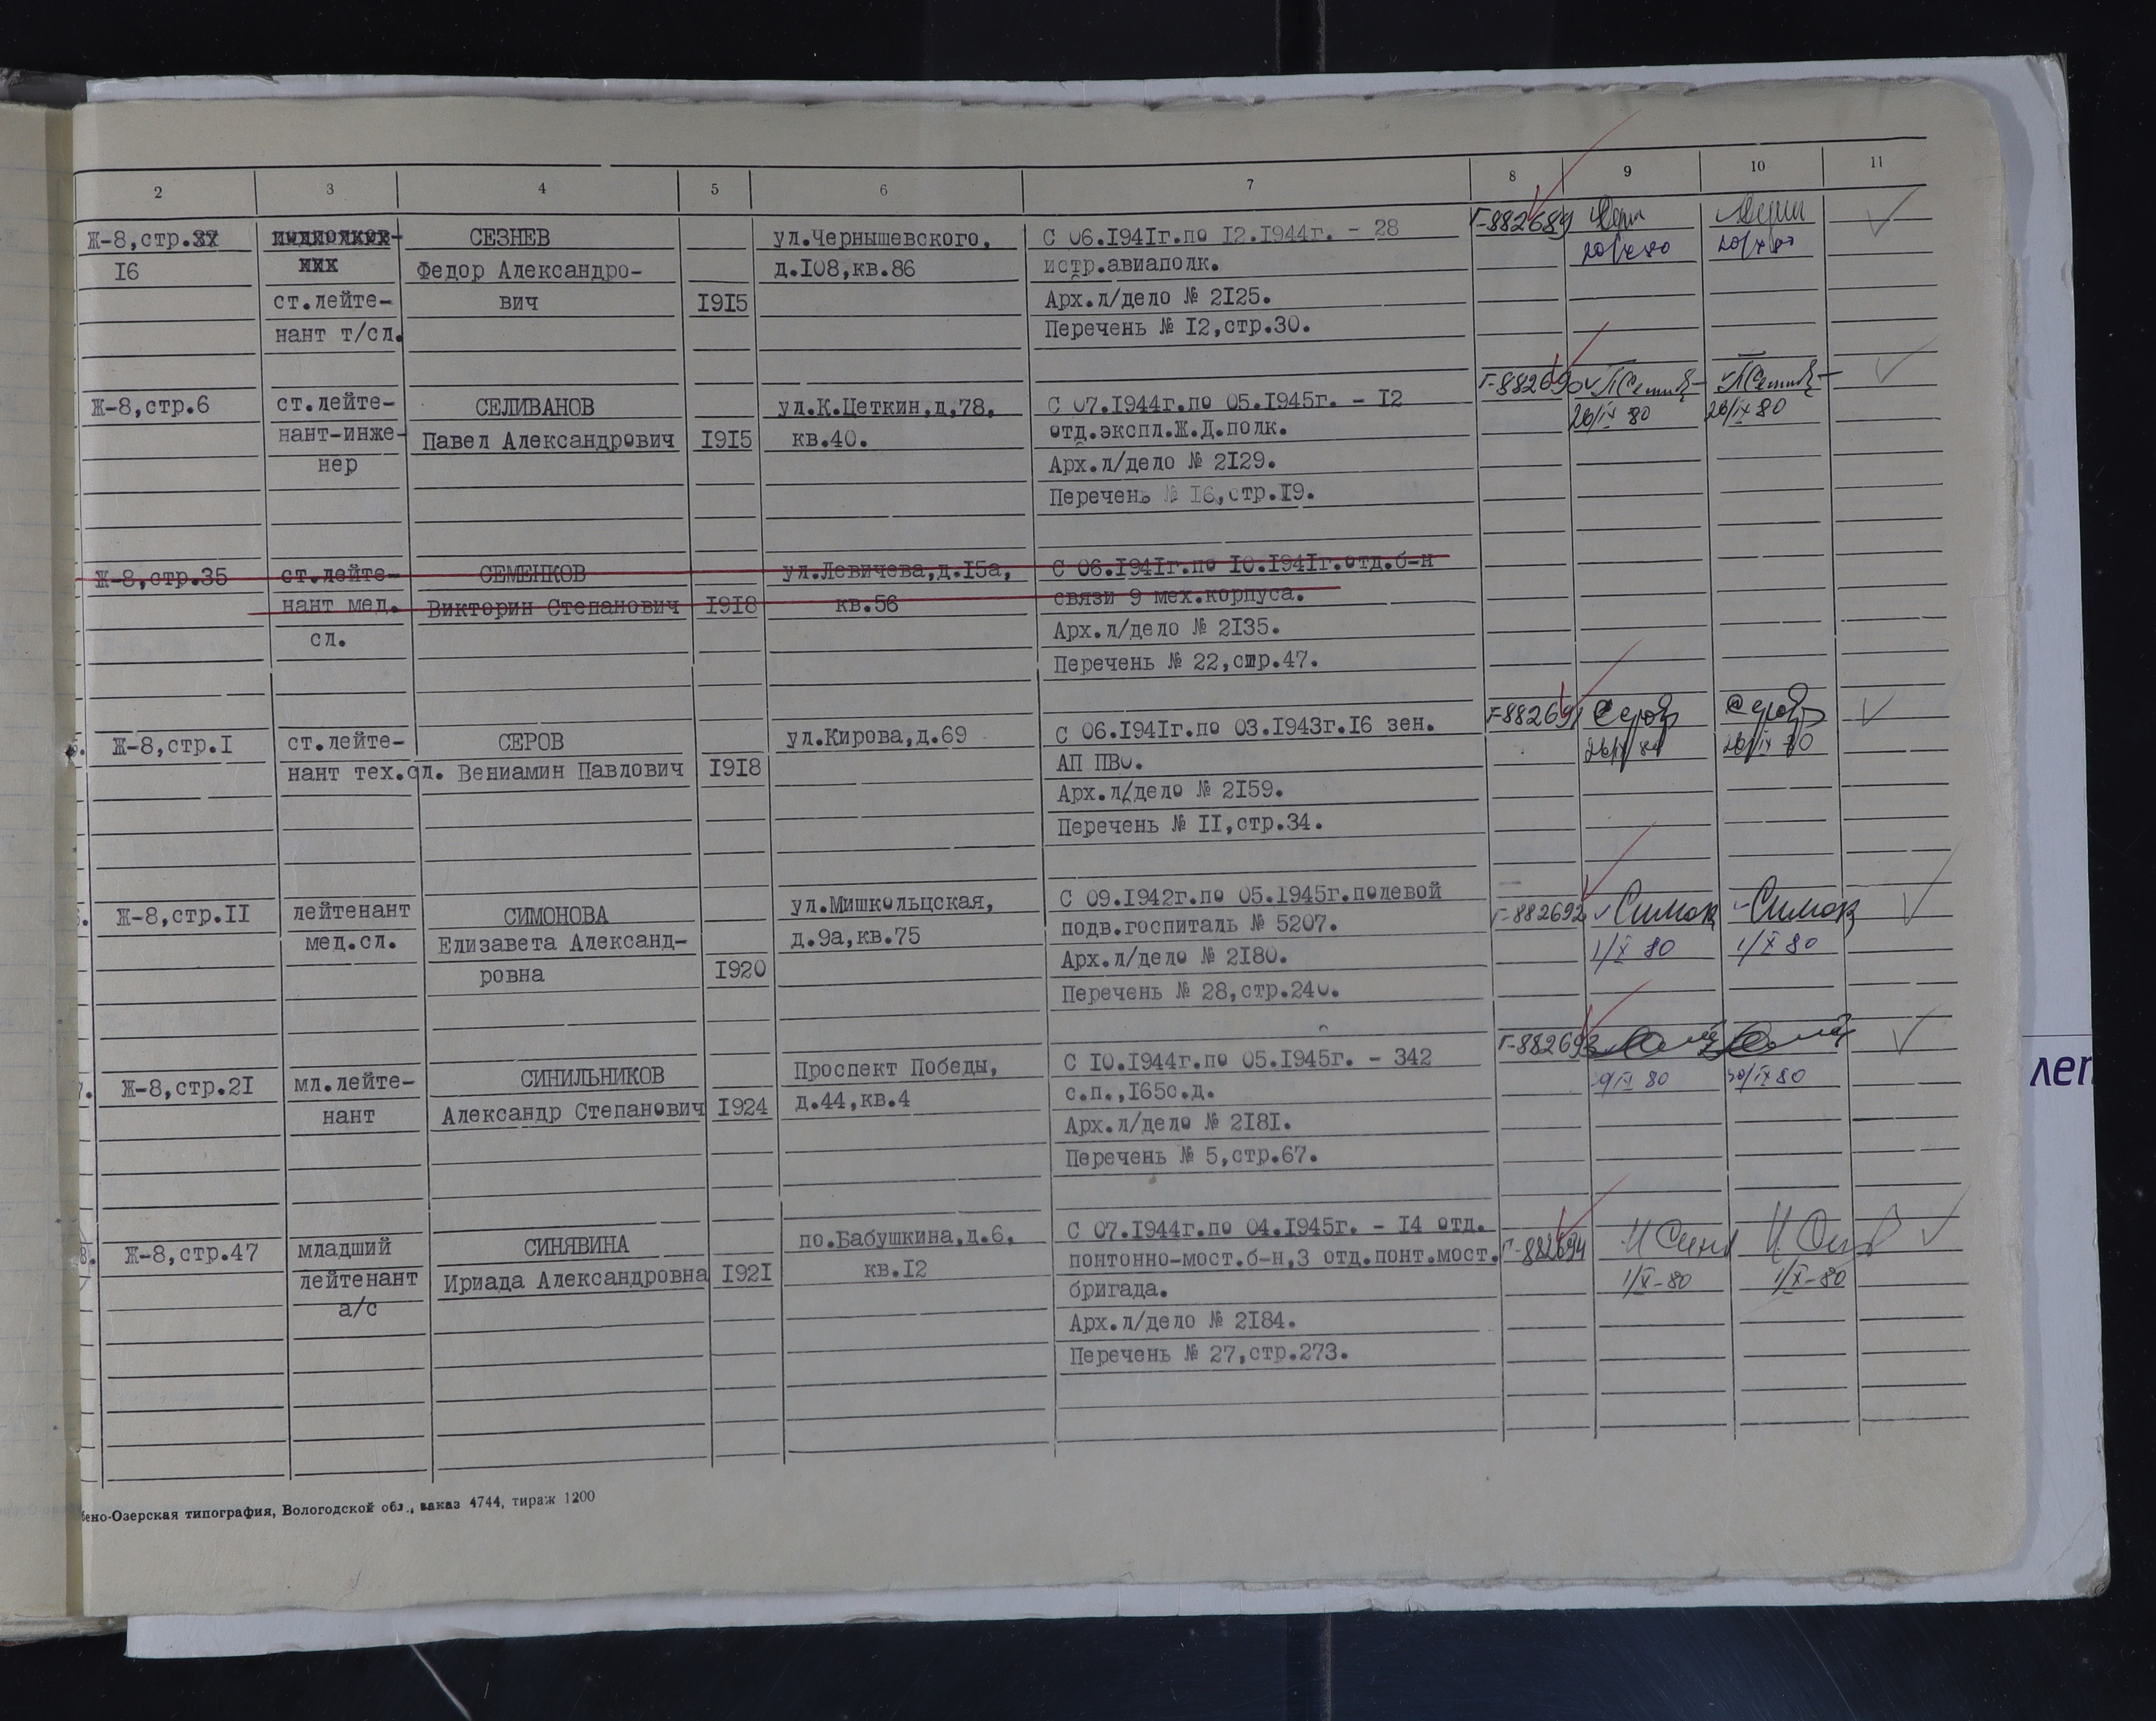 2 3 4 5 6 7 8 9 10 11
Ж-8,стр.
16
ст.лейте-
нант т/сл.
СЕЗНЕВ
Федор Александро-
вич
1915
ул.Чернышевского,
д.108,кв.86
С 06.1941г.по 12.1944г. - 28
истр.авиаполк.
Арх.л/дело № 2125.
Перечень № 12,стр.30.
Г-882689
20/X 80
Ж-8,стр.6
ст.лейте-
нант-инже-
нер
СЕЛИВАНОВ
Павел Александрович
1915
ул.К.Цеткин,д.78,
кв.40.
С 07.1944г.по 05.1945г. - 12
отд.экспл.Ж.Д.полк.
Арх.л/дело № 2129.
Перечень № 16,стр.19.
Г-882690
26/IX 80
26/IX 80
Ж-8,стр.35
ст.лейте-
нант мед.
сл.
СЕМЕНКОВ
Викторин Степанович
1918
ул.Левичева,д.15а,
кв.56
С 06.1941г.по 10.1941г.отд.б-н
связи 9 мех.корпуса.
Арх.л/дело № 2135.
Перечень № 22,стр.47.
Ж-8,стр.1
ст.лейте-
нант тех.сл.
СЕРОВ
Вениамин Павлович
1918
ул.Кирова,д.69
С 06.1941г.по 03.1943г.16 зен.
АП ПВО.
Арх.л/дело № 2159.
Перечень № 11,стр.34.
Г-882691
26/IX 80
26/IX 80
Ж-8,стр.11
лейтенант
мед.сл.
СИМОНОВА
Елизавета Александ-
ровна
1920
ул.Мишкольцская,
д.9а,кв.75
С 09.1942г.по 05.1945г.полевой
подв.госпиталь № 5207.
Арх.л/дело № 2180.
Перечень № 28,стр.240.
Г-882692
1/X 80
1/X 80
7.
Ж-8,стр.21
мл.лейте-
нант
СИНИЛЬНИКОВ
Александр Степанович
1924
Проспект Победы,
д.44,кв.4
С 10.1944г.по 05.1945г. - 342
с.п.,165с.д.
Арх.л/дело № 2181.
Перечень № 5,стр.67.
Г-882693
30/IX 80
8.
Ж-8,стр.47
младший
лейтенант
а/с
СИНЯВИНА
Ириада Александровна
1921
по.Бабушкина,д.6,
кв.12
С 07.1944г.по 04.1945г. - 14 отд.
понтонно-мост.б-н,3 отд.понт.мост.
бригада.
Арх.л/дело № 2184.
Перечень № 27,стр.273.
Г-882694
1/X-80
1/X-80
ено-Озерская типография, Вологодской обл., заказ 4744, тираж 1200